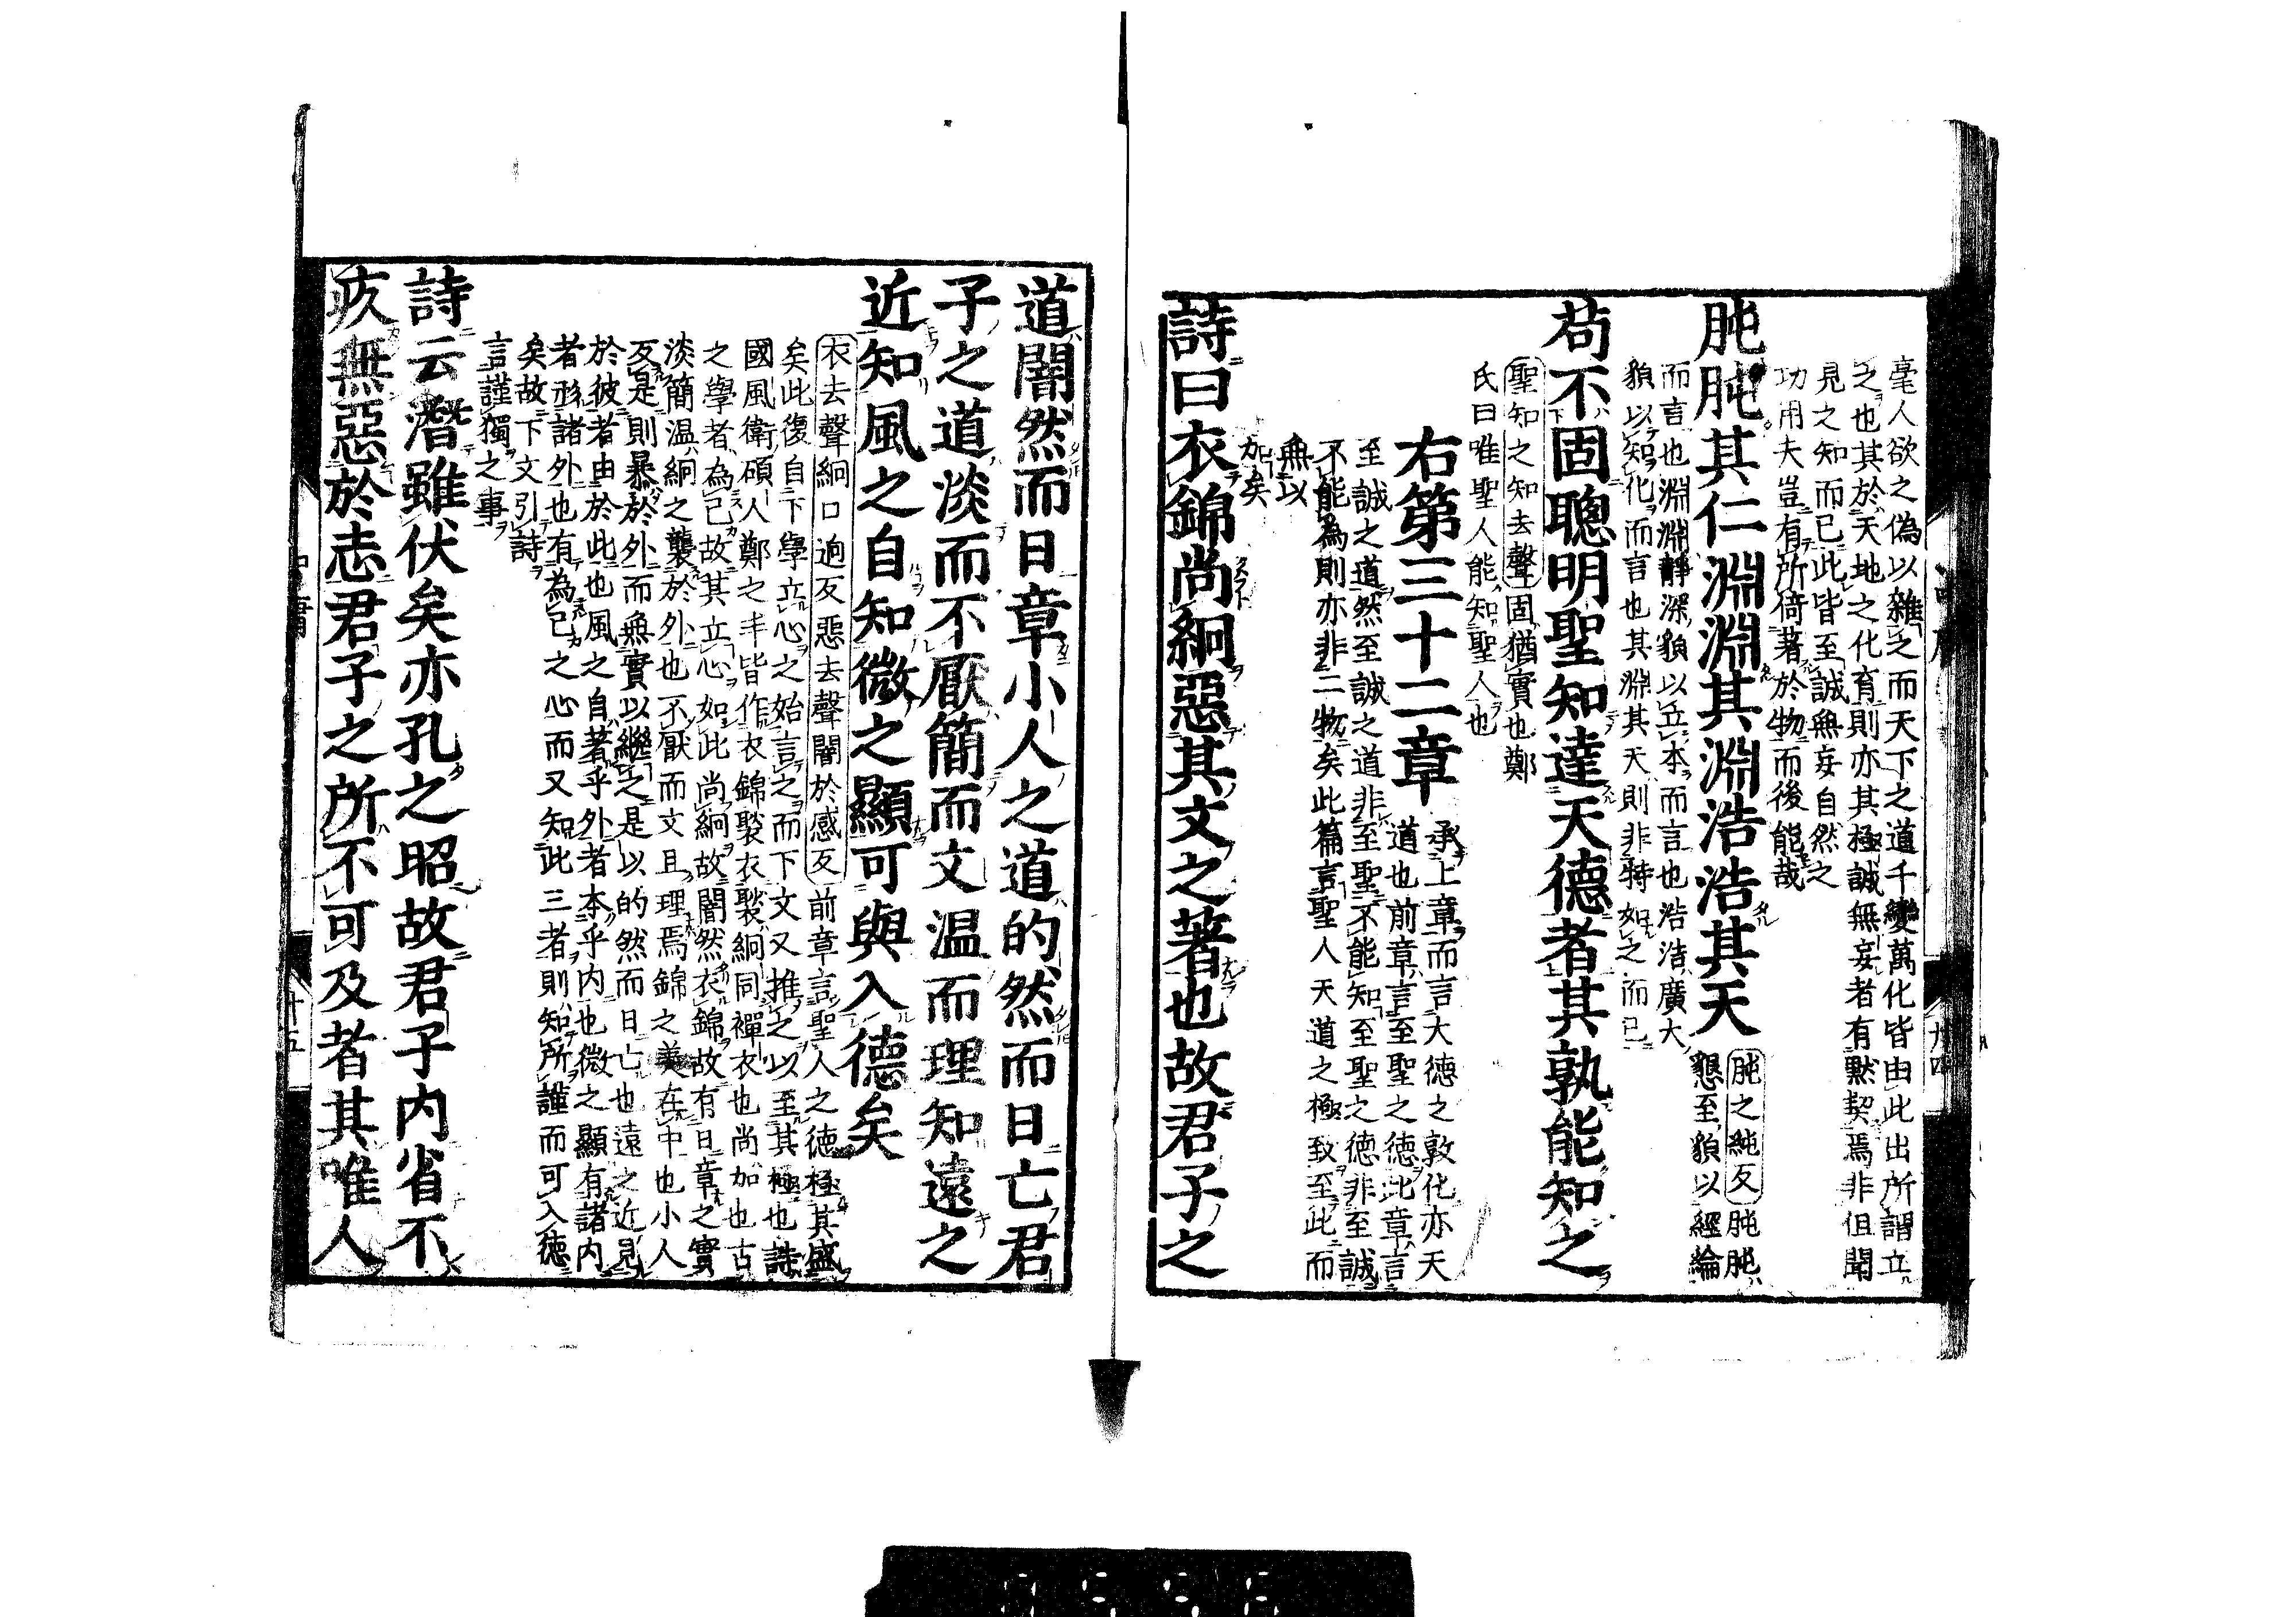 毫人欲之偽以雜之而天下之道千變萬化皆由此出所謂立
之也其於天地之化育則亦其極誠無妄者有黙契焉非但聞
見之知而已此皆至誠無妄自然之
功用夫豈有所倚著於物而後能哉
肫肫其仁淵淵其淵浩浩其天
肫之純反肫肫
懇至貌以經綸
而言也淵淵靜深貌以立本而言也浩浩廣大
貌以知化而言也其淵其天則非特如之而已
苟不固聰明聖知達天德者其孰能知之
聖知之知去聲固猶實也鄭
氏曰唯聖人能知聖人也
右第三十二章
承上章而言大德之敦化亦天
道也前章言至聖之德此章言
至誠之道然至誠之道非至聖不能知至聖之德非至誠
不能為則亦非二物矣此篇言聖人天道之極致至此而
無以
加矣
詩曰衣錦尚絅惡其文之著也故君子之
道闇然而日章小人之道的然而日亡君
子之道淡而不厭簡而文温而理知遠之
近知風之自知微之顯可與入德矣
衣去聲絅口迥反惡去聲闇於感反前章言聖人之德極其盛
矣此復自下學立心之始言之而下文又推之以至其極也詩
國風衛碩人鄭之丰皆作衣錦褧衣褧絅同襌衣也尚加也古
之學者為己故其立心如此尚絅故闇然衣錦故有日章之實
淡簡温絅之襲於外也不厭而文且理焉錦之美在中也小人
反是則暴於外而無實以繼之是以的然而日亡也遠之近見
於彼者由於此也風之自著乎外者本乎内也微之顯有諸内
者形諸外也有為己之心而又知此三者則知所謹而可入德
矣故下文引詩
言謹獨之事
詩云潛雖伏矣亦孔之昭故君子内省不
疚無惡於志君子之所不可及者其唯人